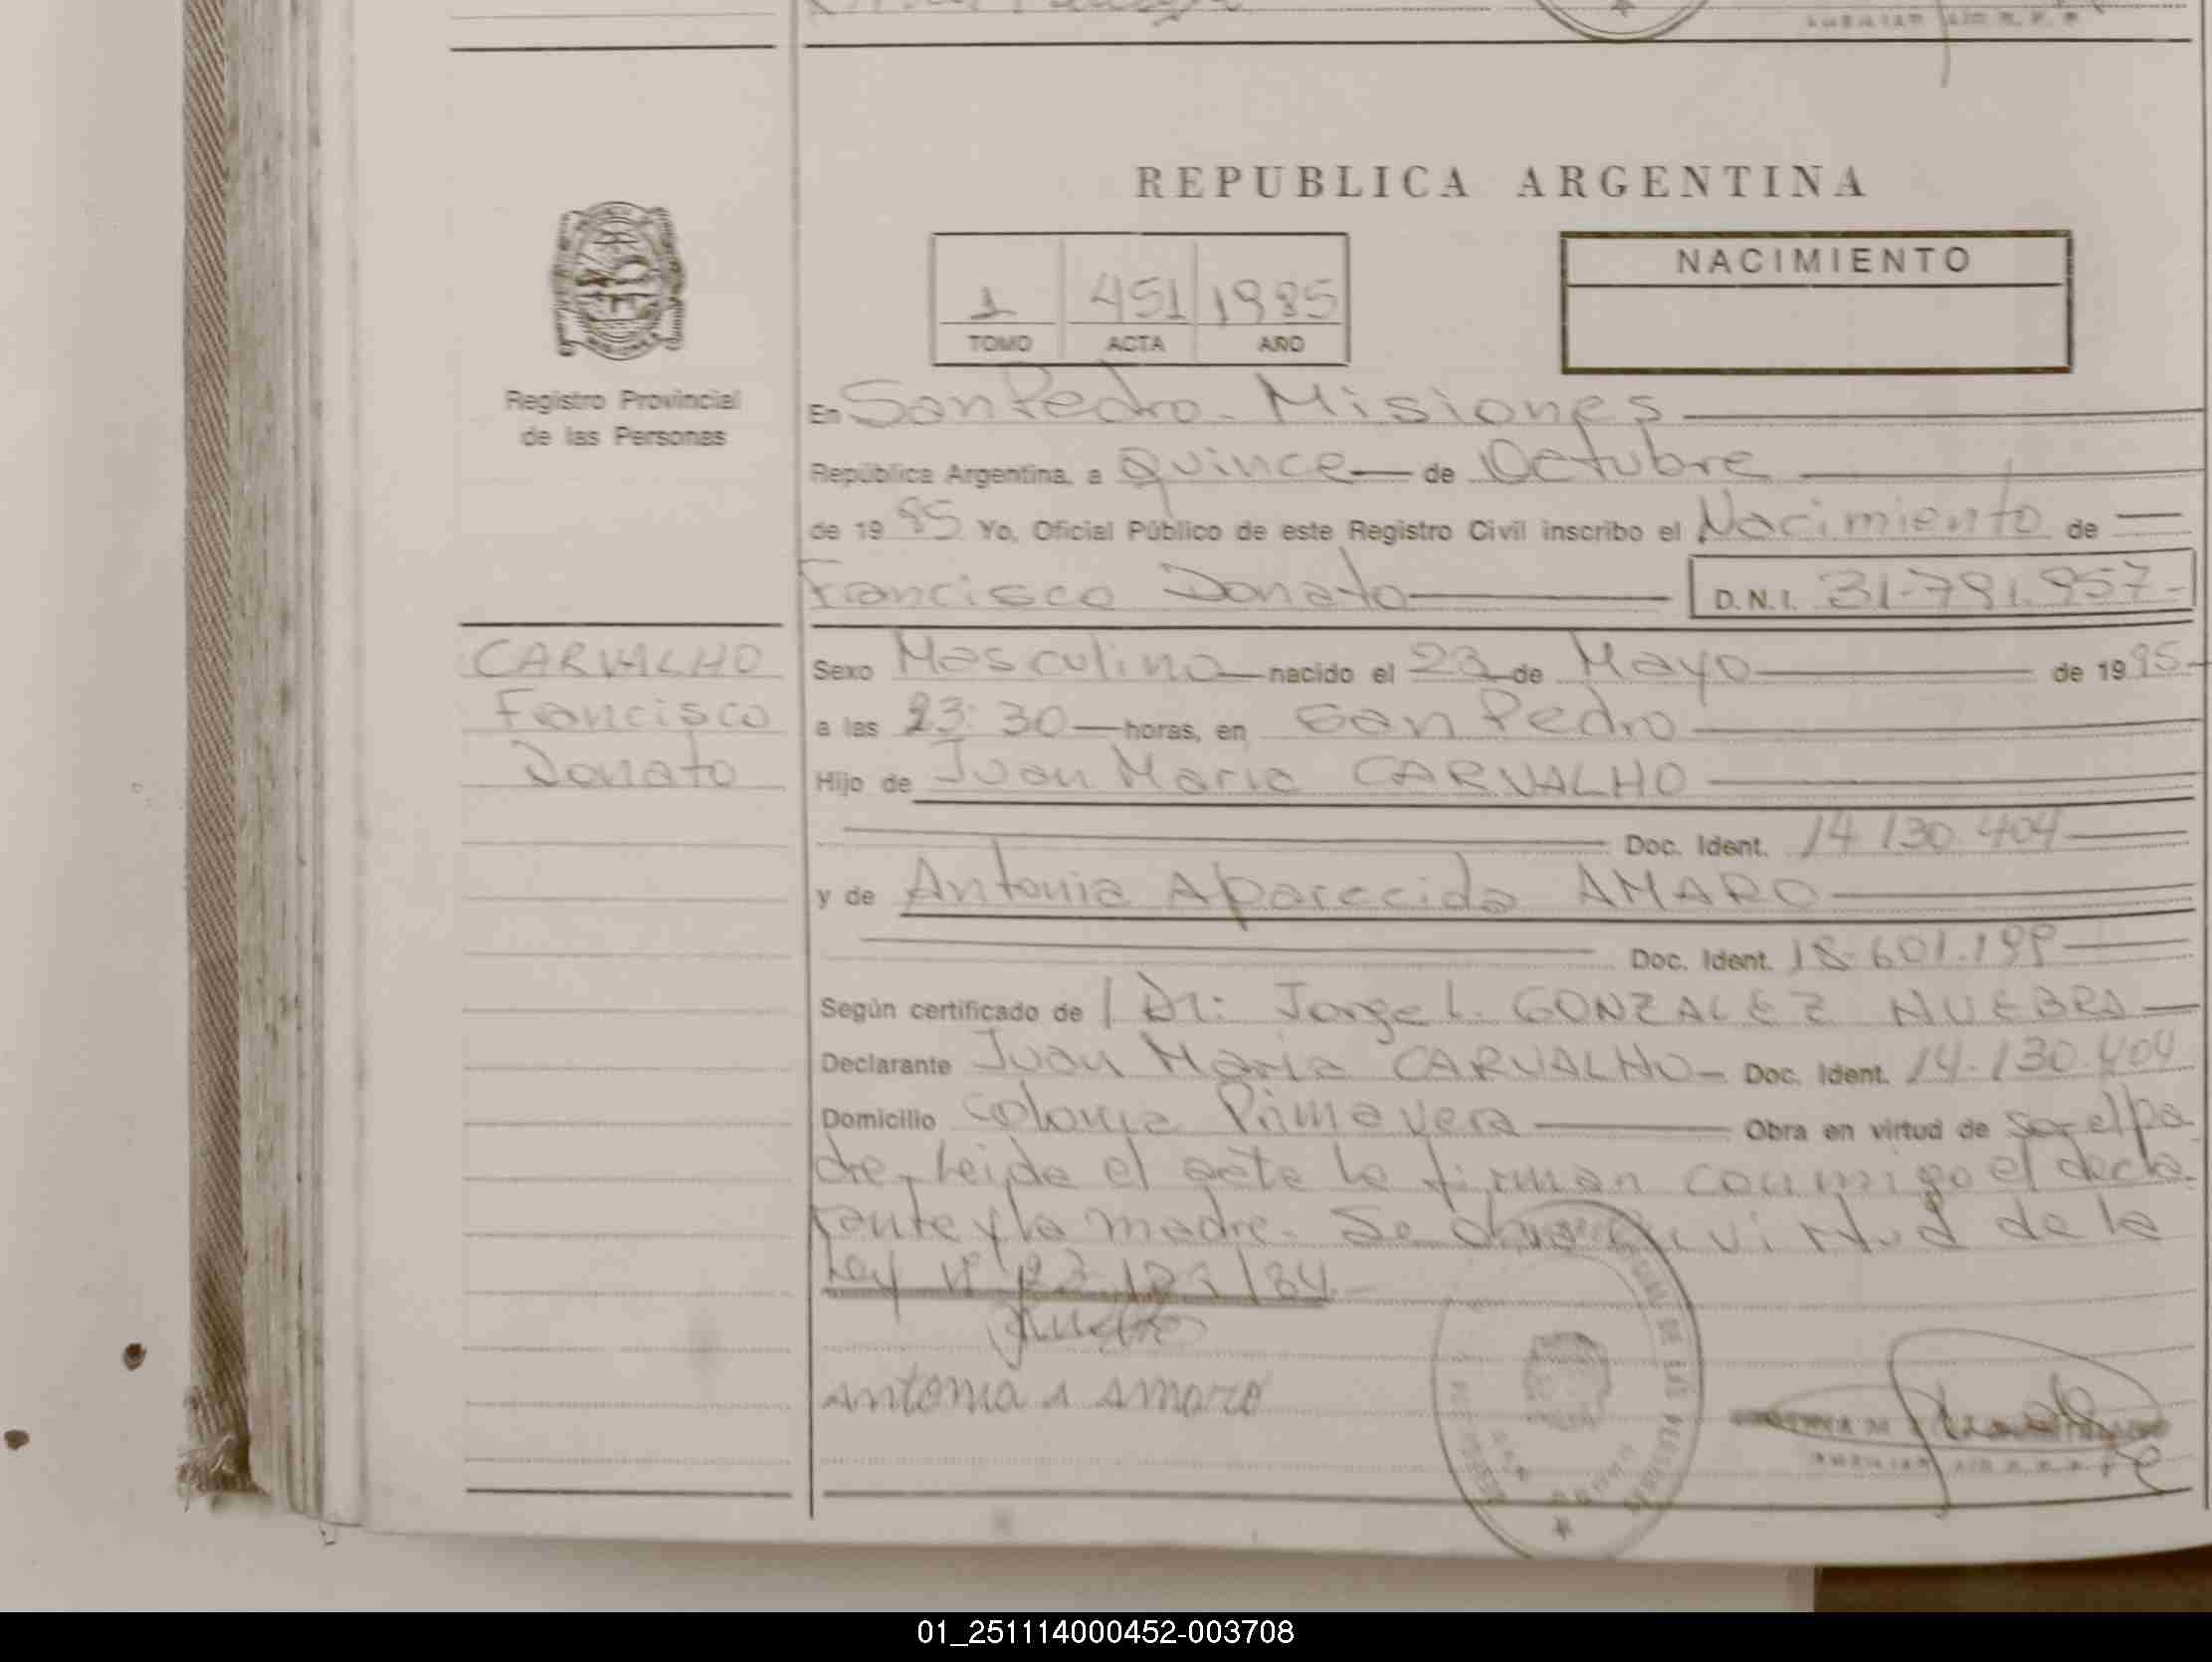 REPUBLICA ARGENTINA
NACIMIENTO
1 451 1985
TOMO ACTA AÑO
Registro Provincial
de las Personas
En San Pedro - Misiones
República Argentina, a Quince de Octubre
de 1985 Yo, Oficial Público de este Registro Civil inscribo el Nacimiento de
Francisco Donato D.N.I. 31.791.957-
CARVALHO
Francisco
Donato
Sexo Masculino nacido el 23 de Mayo de 1985
a las 23:30 horas, en San Pedro
Hijo de Juan Maria CARVALHO
Doc. Ident. 14.130.404
y de Antonia Aparecida AMARO
Doc. Ident. 18.601.199
Según certificado de Dr: Jorge L. GONZALEZ NUEBRA
Declarante Juan Maria CARVALHO - Doc. Ident. 14.130.404
Domicilio Colonia Primavera Obra en virtud de ser el pa
dre - Leida el acta la firman conmigo el decla
rante y la madre - Se virtud de la
Ley Nº /84 -
Antonia A Amaro
01_251114000452-003708